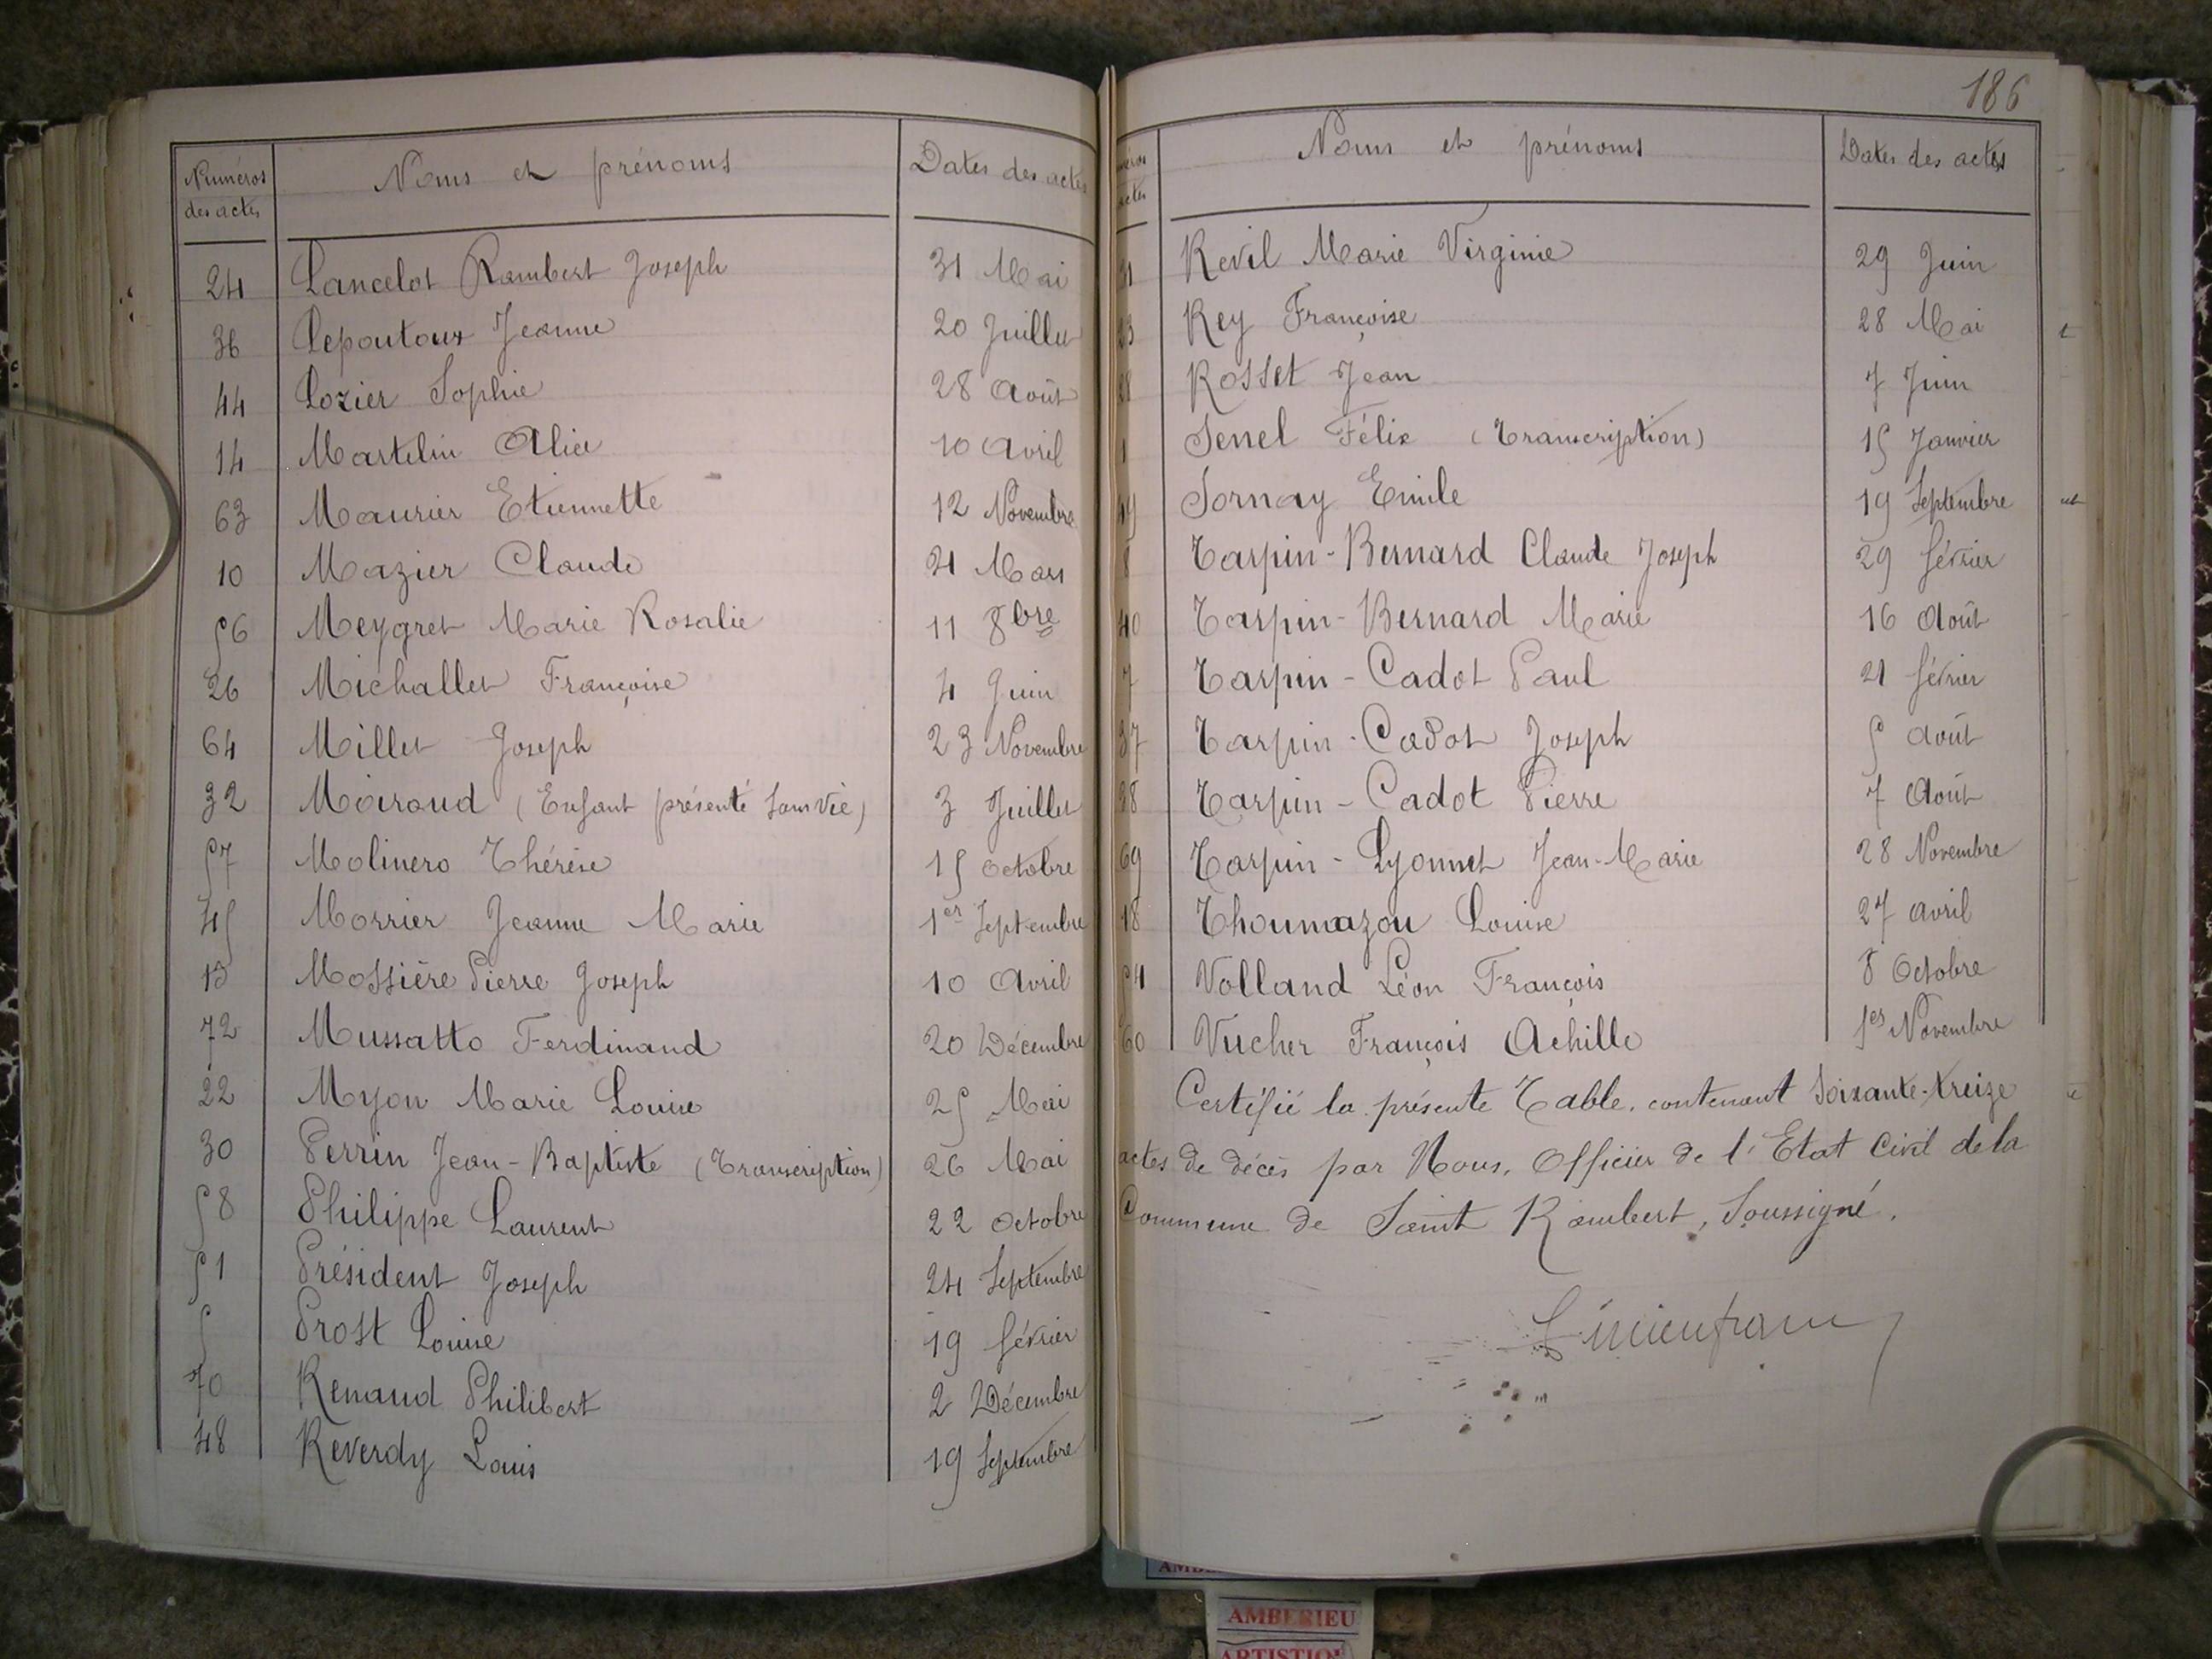 Numéros des actes Noms et prénoms Dates des actes
24 Lancelot Rambert Joseph 31 Mai
36 Lepoutoux Jeanne 20 Juillet
44 Lozier Sophie 28 Août
14 Martelin Alice 10 Avril
63 Maurier Etiennette 12 Novembre
10 Mazier Claude 21 Mars
56 Meygret Marie Rosalie 11 8bre
26 Michallet Françoise 4 Juin
64 Millet Joseph 23 Novembre
32 Moiroud (Enfant présenté sans vie) 3 Juillet
57 Molinero Thérèse 15 Octobre
45 Morrier Jeanne Marie 1er Septembre
13 Mossière Pierre Joseph 10 Avril
72 Mussatto Ferdinand 20 Décembre
22 Myon Marie Louise 25 Mai
30 Perrin Jean-Baptiste (Transcription) 26 Mai
58 Philippe Laurent 22 Octobre
51 Président Joseph 24 Septembre
5 Prost Louise 19 février
70 Renaud Philibert 2 Décembre
48 Reverdy Louis 19 Septembre
186
Noms et prénoms Dates des actes
31 Revil Marie Virginie 29 Juin
23 Rey Françoise 28 Mai
28 Rosset Jean 7 Juin
1 Senel Félix (Transcription) 15 Janvier
49 Sornay Emile 19 Septembre
8 Tarpin-Bernard Claude Joseph 29 février
40 Tarpin-Bernard Marie 16 Août
7 Tarpin-Cadot Paul 21 février
37 Tarpin-Cadot Joseph 5 Août
38 Tarpin-Cadot Pierre 7 Août
69 Tarpin-Lyonnet Jean-Marie 28 Novembre
18 Thoumazou Louise 27 Avril
54 Volland Léon François 8 Octobre
60 Vucher François Achille 1er Novembre
Certifié la présente Table, contenant soixante-treize
actes de décès par Nous, Officier de l'Etat Civil de la
Commune de Saint Rambert, Soussigné.
AMBERIEU